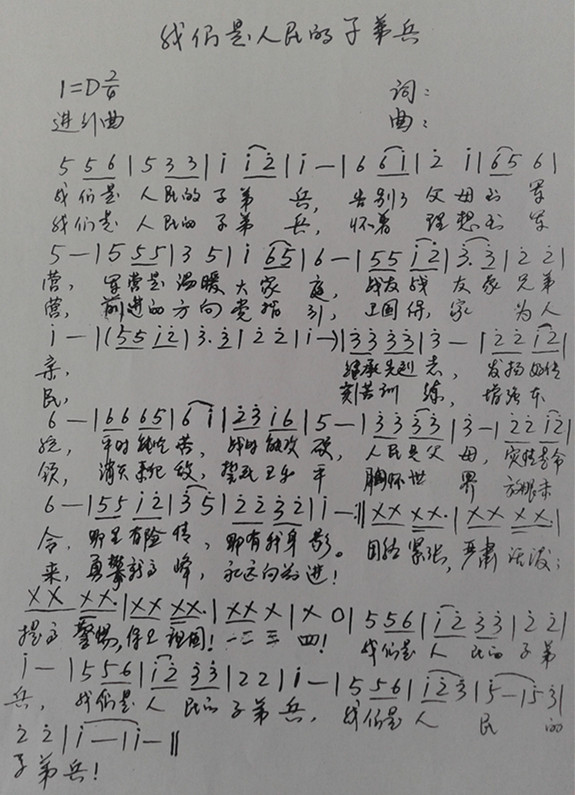 我们是人民的子弟兵
1=D 2/4
词：
进行曲
曲：
5 5 6 | 5 3 3 | i i 2 | i — | 6 6 i | 2 i | 6 5 6 |
我们是 人民的 子弟 兵， 告别了 父母到 军
我们是 人民的 子弟 兵， 怀着 理想到 军
5 — | 5 5 5 | 3 5 | i 6 5 | 6 — | 5 5 i 2 | 3· 3 | 2 2 |
营， 军营是 温暖 大家 庭， 战友战 友家 兄弟
营， 前进的 方向 党指 引， 卫国 家 为人
i — | (5 5 i 2 | 3· 3 | 2 2 | i —) | 3 3 3 3 | 3 — | 2 2 i 2 |
亲， 继承 志， 发扬 传
民， 刻苦训 练， 增强本
6 — | 6 6 6 5 | 6 i | 2 3 i 6 | 5 — | 3 3 3 3 | 3 — | 2 2 i 2 |
统， 平时能吃 苦， 战时 攻 人民是父 母， 命
领， 消灭来犯 敌， 卫和 平 胸怀世 界 放眼未
6 — | 5 5 i 2 | 3 5 | 2 2 3 2 | i — :|| X X X X· | X X X X· |
令， 哪里有险 情， 那有我身 影。 团结 紧张， 严肃 活泼；
来， 勇攀高 峰， 永远向前 进！
X X X X· | X X X X· | X X X | X 0 | 5 5 6 | i 2 3 3 | 2 2 |
提高 警惕， 保卫 祖国！ 一二三 四！ 我们是 人 民的 子弟
i — | 5 5 6 | i 2 3 3 | 2 2 | i — | 5 5 6 | i 2 3 | 5 — | 5 3 |
兵， 我们是 人 民的 子弟 兵， 我们是 人 民 的
2 2 | i — | i — ||
子弟 兵！